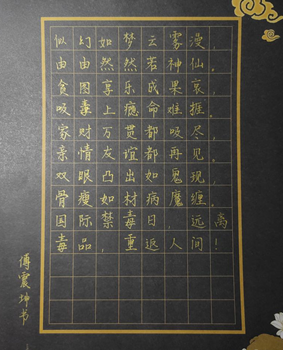 似幻如梦云雾漫，
由由然然若神仙。
贪图享乐成果哀，
吸毒上瘾命难捱。
家财万贯都吸尽，
亲情友谊都再见。
双眼凸出如鬼现，
骨瘦如材病魔缠。
国际禁毒日，远离
毒品，重返人间！
傅震坤书